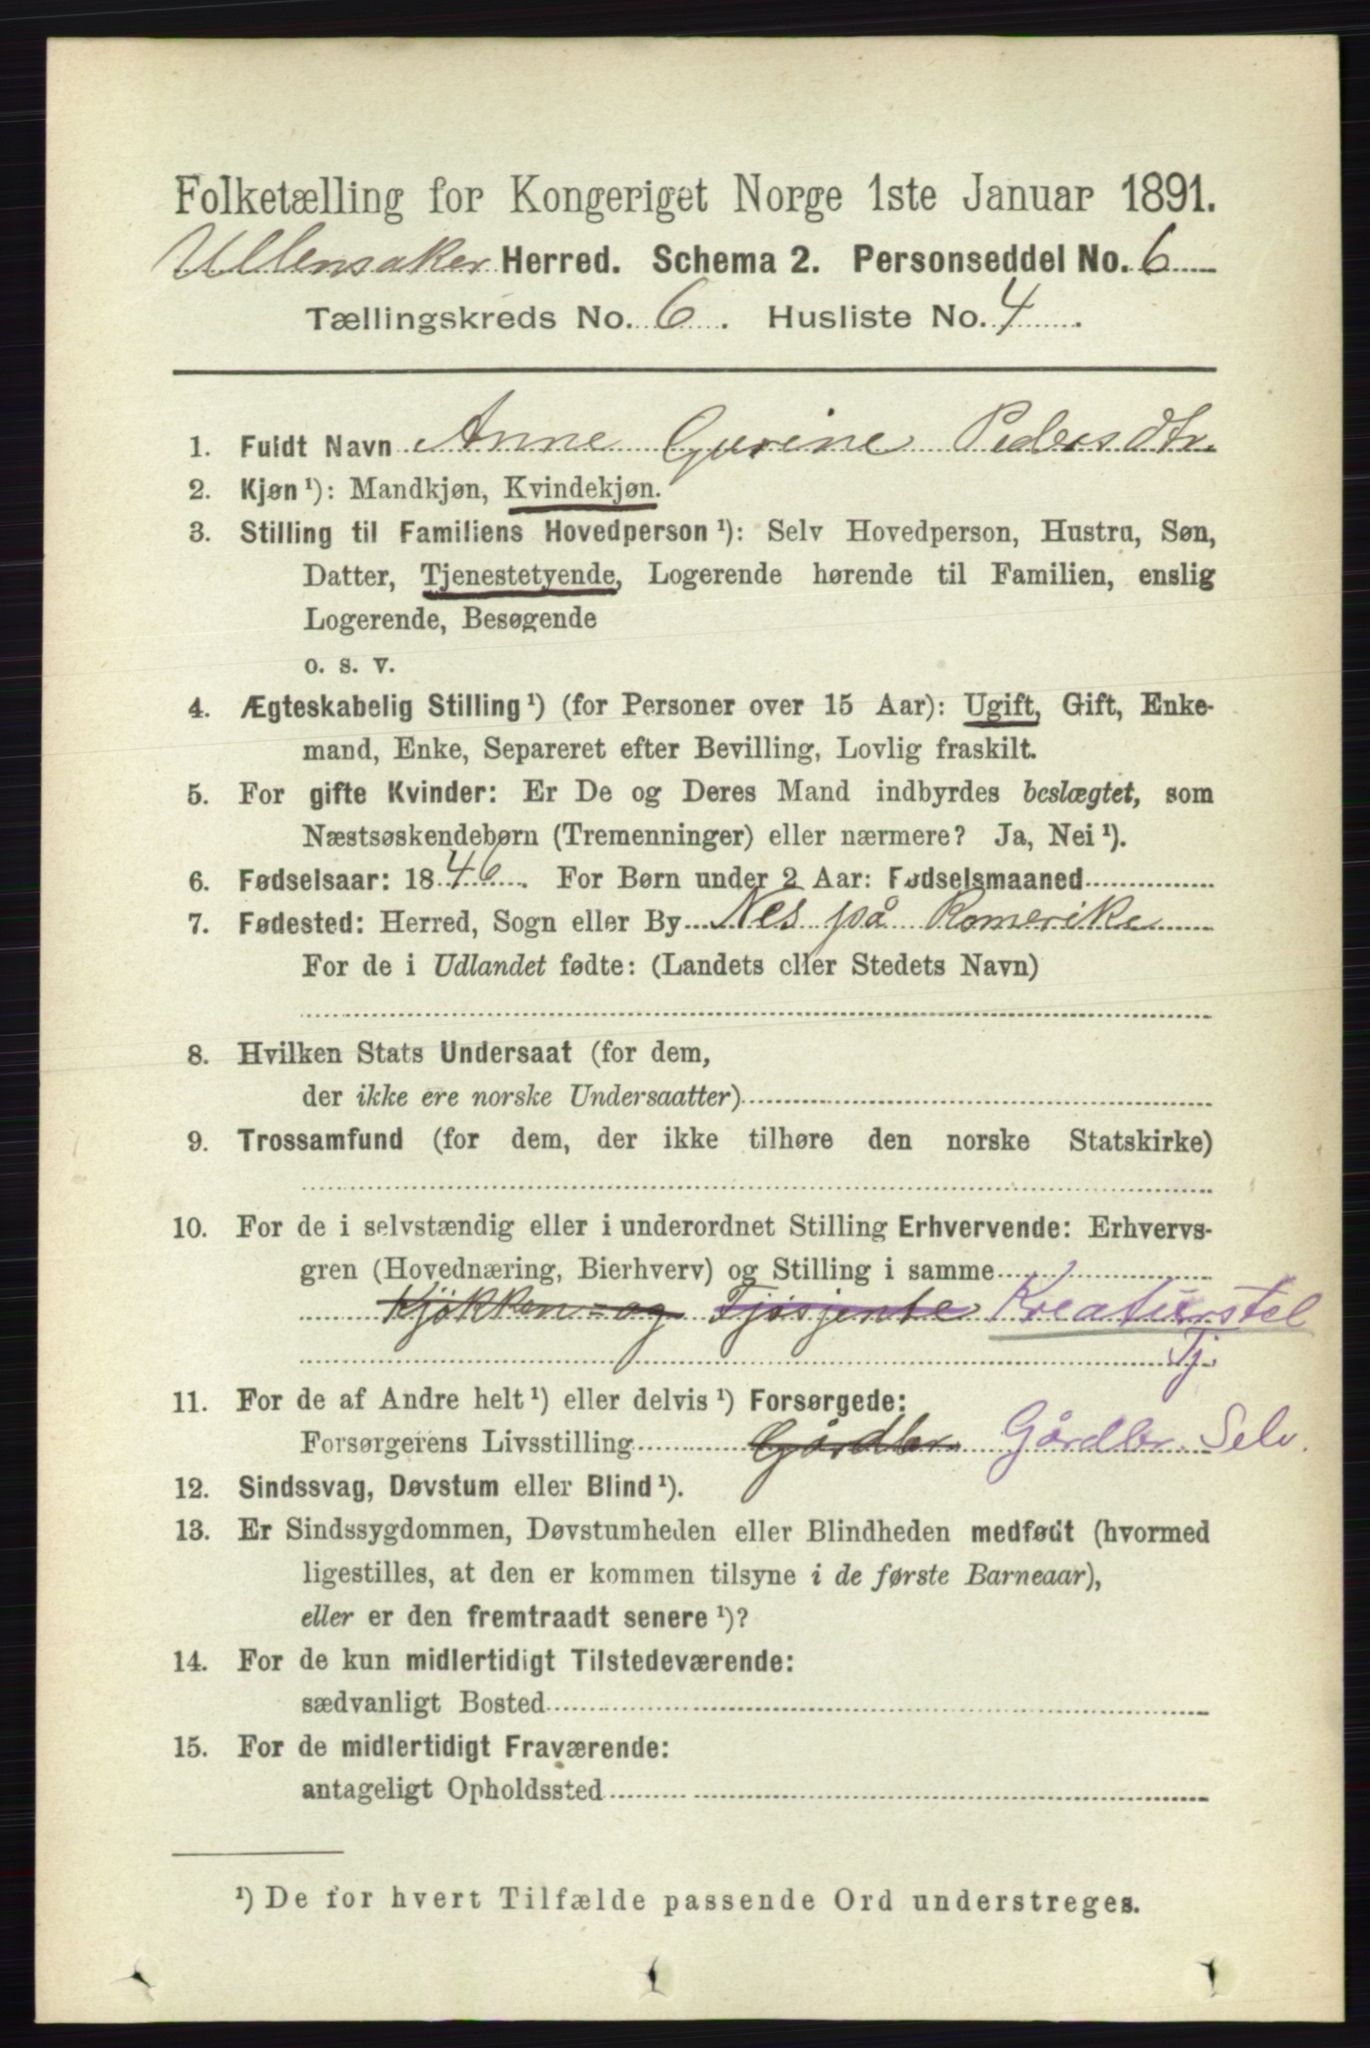 Folketælling for Kongeriget Norge 1ste Januar 1891.
Ullensaker Herred. Schema 2. Personseddel No. 6
Tællingskreds No. 6. Husliste No. 4.
1. Fuldt Navn Anne Gurine Pedersdtr.
2. Kjøn ¹): Mandkjøn, Kvindekjøn.
3. Stilling til Familiens Hovedperson ¹): Selv Hovedperson, Hustru, Søn,
Datter, Tjenestetyende, Logerende hørende til Familien, enslig
Logerende, Besøgende
o. s. v.
4. Ægteskabelig Stilling ¹) (for Personer over 15 Aar): Ugift, Gift, Enke-
mand, Enke, Separeret efter Bevilling, Lovlig fraskilt.
5. For gifte Kvinder: Er De og Deres Mand indbyrdes beslægtet, som
Næstsøskendebørn (Tremenninger) eller nærmere? Ja, Nei ¹).
6. Fødselsaar: 1846. For Børn under 2 Aar: Fødselsmaaned
7. Fødested: Herred, Sogn eller By Nes på Romerike
For de i Udlandet fødte: (Landets eller Stedets Navn)
8. Hvilken Stats Undersaat (for dem,
der ikke ere norske Undersaatter)
9. Trossamfund (for dem, der ikke tilhøre den norske Statskirke)
10. For de i selvstændig eller i underordnet Stilling Erhvervende: Erhvervs-
gren (Hovednæring, Bierhverv) og Stilling i samme
Kjøkken- og Fjøsjente Kreaturstel
Tj.
11. For de af Andre helt ¹) eller delvis ¹) Forsørgede:
Forsørgerens Livsstilling Gårdbr. Gårdbr. Selv.
12. Sindssvag, Døvstum eller Blind ¹).
13. Er Sindssygdommen, Døvstumheden eller Blindheden medfødt (hvormed
ligestilles, at den er kommen tilsyne i de første Barneaar),
eller er den fremtraadt senere ¹)?
14. For de kun midlertidigt Tilstedeværende:
sædvanligt Bosted
15. For de midlertidigt Fraværende:
antageligt Opholdssted
¹) De for hvert Tilfælde passende Ord understreges.